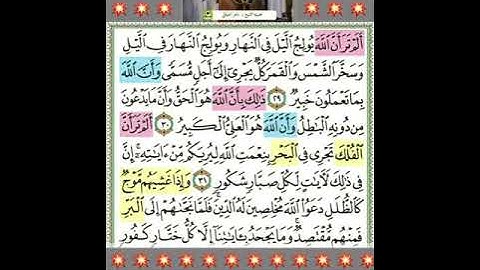 أَلَمْ تَرَ أَنَّ ٱللَّهَ يُولِجُ ٱلَّيْلَ فِى ٱلنَّهَارِ وَيُولِجُ ٱلنَّهَارَ فِى ٱلَّيْلِ
وَسَخَّرَ ٱلشَّمْسَ وَٱلْقَمَرَ كُلٌّ يَجْرِىٓ إِلَىٰٓ أَجَلٍ مُّسَمًّى وَأَنَّ ٱللَّهَ
بِمَا تَعْمَلُونَ خَبِيرٌ ٢٩ ذَٰلِكَ بِأَنَّ ٱللَّهَ هُوَ ٱلْحَقُّ وَأَنَّ مَا يَدْعُونَ
مِن دُونِهِ ٱلْبَٰطِلُ وَأَنَّ ٱللَّهَ هُوَ ٱلْعَلِىُّ ٱلْكَبِيرُ ٣٠ أَلَمْ تَرَ أَنَّ
ٱلْفُلْكَ تَجْرِى فِى ٱلْبَحْرِ بِنِعْمَتِ ٱللَّهِ لِيُرِيَكُم مِّنْ ءَايَٰتِهِۦٓ إِنَّ
فِى ذَٰلِكَ لَءَايَٰتٍ لِّكُلِّ صَبَّارٍ شَكُورٍ ٣١ وَإِذَا غَشِيَهُم مَّوْجٌ
كَٱلظُّلَلِ دَعَوُا۟ ٱللَّهَ مُخْلِصِينَ لَهُ ٱلدِّينَ فَلَمَّا نَجَّىٰهُمْ إِلَى ٱلْبَرِّ
فَمِنْهُم مُّقْتَصِدٌ وَمَا يَجْحَدُ بِـَٔايَٰتِنَآ إِلَّا كُلُّ خَتَّارٍ كَفُورٍ